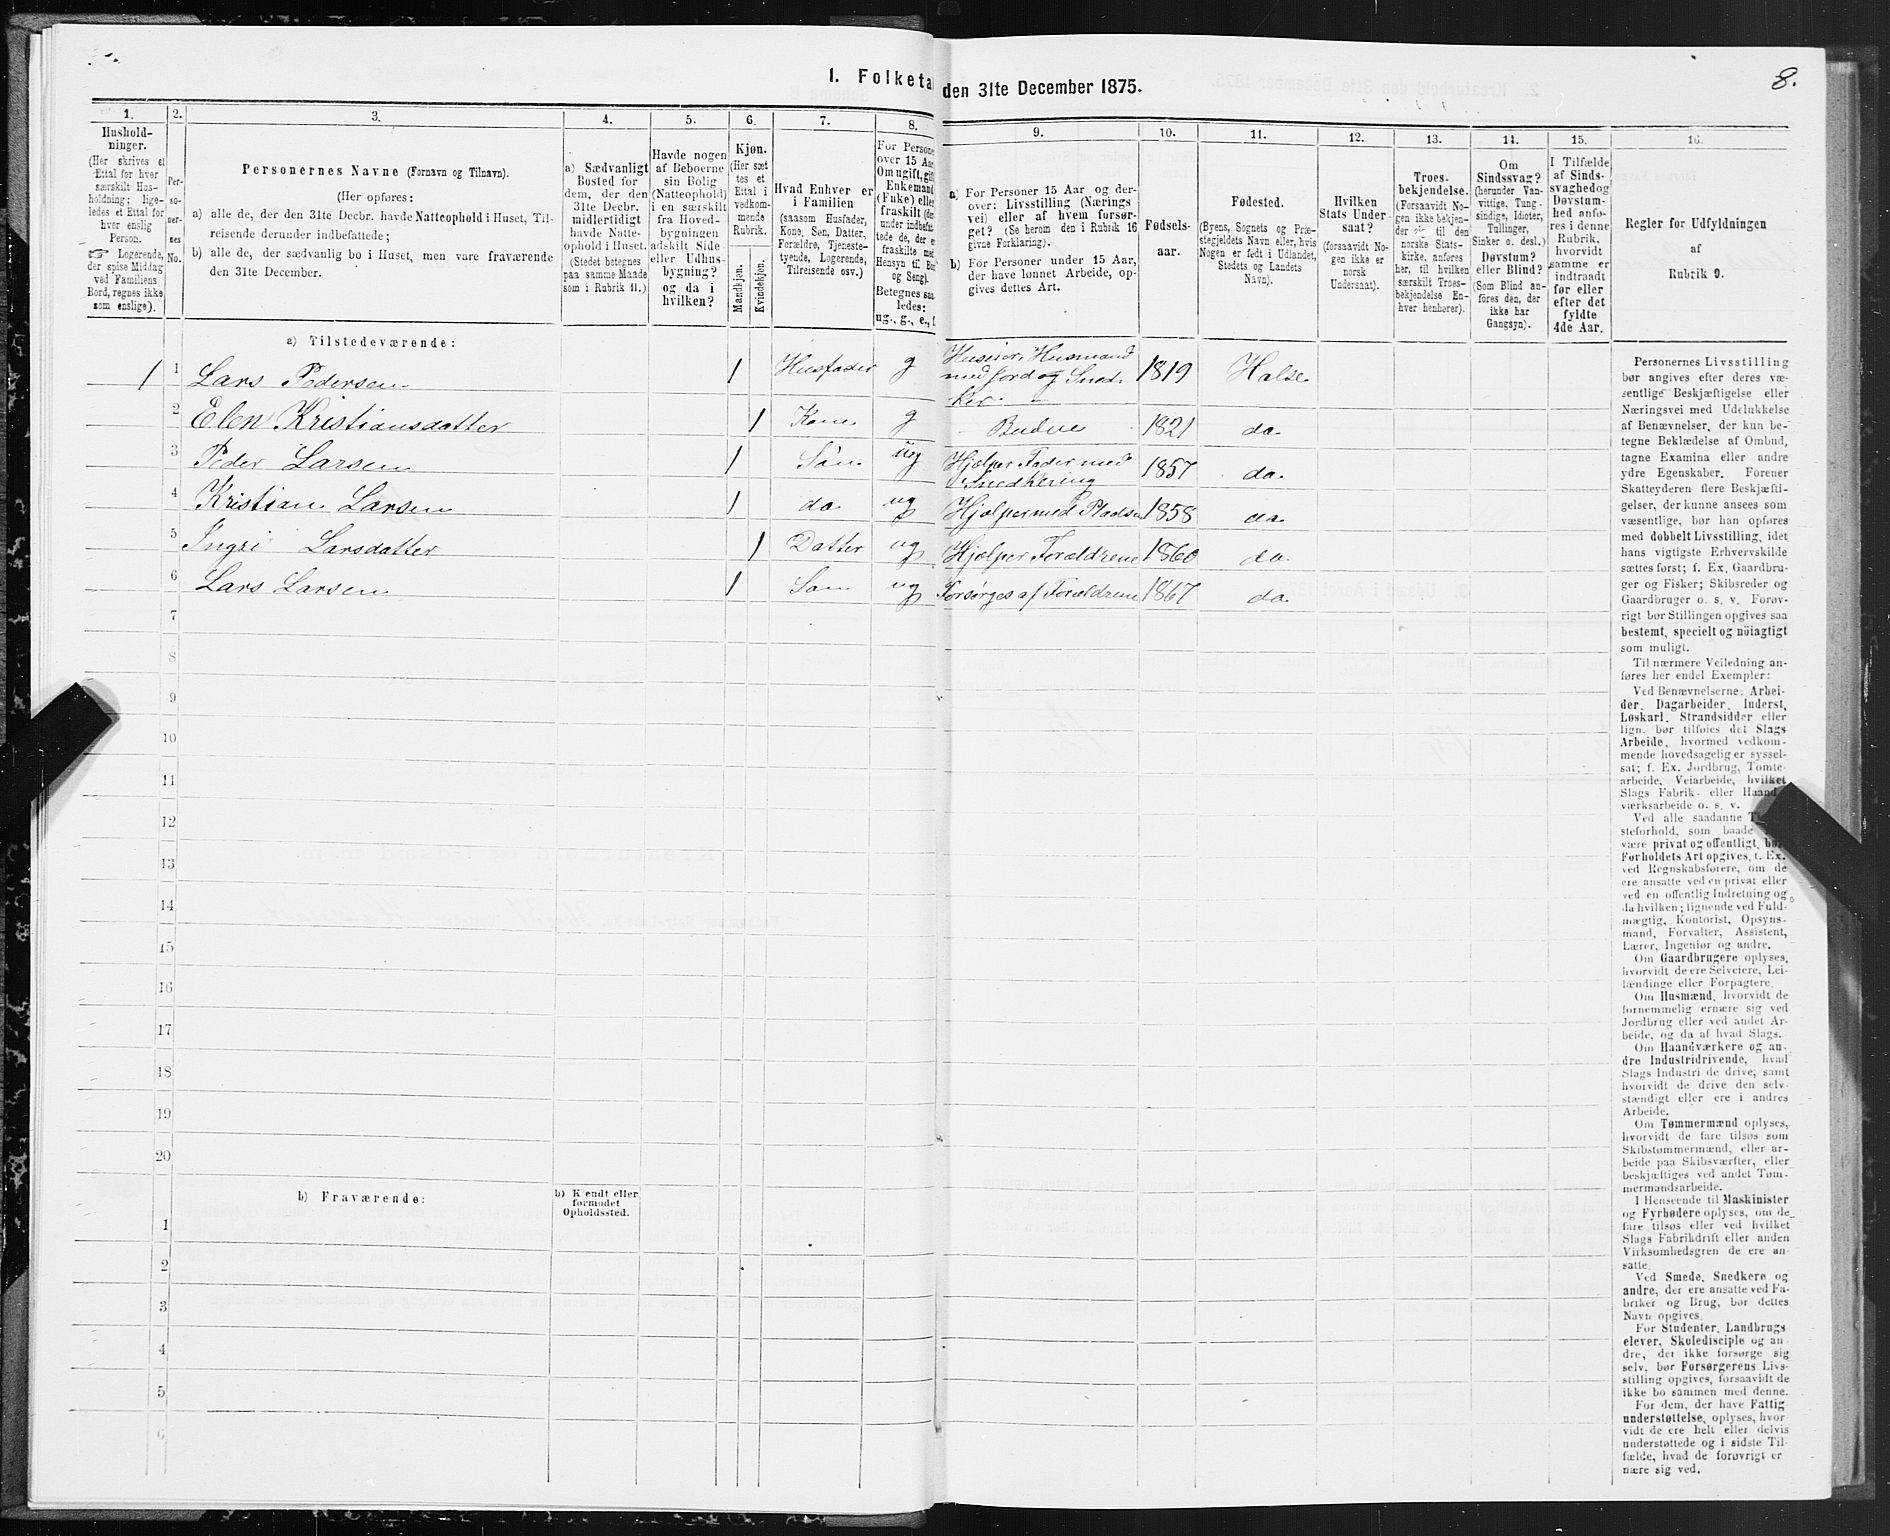 8.
1. Folketa den 31te December 1875.
1. 2. 3. 4. 5. 6. 7. 8. 9. 10. 11. 12. 13. 14. 15. 16.
Hushold-
ninger.
(Her skrives et
Ettal for hver
særskilt Hus-
holdning; lige-
ledes et Ettal for
hver enslig
Person.
☞ Logerende,
der spise Middag
ved Familiens
Bord, regnes ikke
som enslige).
Per-
so-
ner-
nes
No.
Personernes Navne (Fornavn og Tilnavn).
(Her opføres:
a) alle de, der den 31te Decbr. havde Natteophold i Huset, Til-
reisende derunder indbefattede;
b) alle de, der sædvanlig bo i Huset, men vare fraværende
den 31te December.
a) Sædvanligt
Bosted for
dem, der den
31te Decbr.
midlertidigt
havde Natte-
ophold i Huset.
(Stedet betegnes
paa samme Maade
som i Rubrik 11.)
Havde nogen
af Beboerne
sin Bolig
(Natteophold)
i en særskilt
fra Hoved-
bygningen
adskilt Side-
eller Udhus-
bygning?
og da i
hvilken?
Kjøn.
(Her sæt
tes et
Ettal i
vedkom-
mende
Rubrik.
Mandkjøn.
Kvindekjøn.
Hvad Enhver er
i Familien
(saasom Husfader,
Kone, Søn, Datter,
Forældre, Tjeneste-
tyende, Logerende,
Tilreisende osv.)
For Persone
over 15 Aa
Om ugift, gif
Enkemand
(Enke) elle
fraskilt (de
under indbefat
tede de, der e
fraskilte me
Hensyn til Bo
og Seng).
Betegnes saa
ledes:
ug., g., e.,
a) For Personer 15 Aar og der-
over: Livsstilling (Nærings
vei) eller af hvem forsør-
get? (Se herom den i Rubrik 16
givne Forklaring).
b) For Personer under 15 Aar,
der have lønnet Arbeide, op-
gives dettes Art.
Fødsels-
aar.
Fødested.
(Byens, Sognets og Præ-
stegjeldets Navn eller, hvis
Nogen er født i Udlandet,
Stedets og Landets
Navn).
Hvilken
Stats Under-
saat?
(forsaavidt No-
gen ikke er
norsk
Undersaat).
Troes-
bekjendelse.
(Forsaavidt No-
gen ikke bekjen-
der sig til den
norske Stats-
kirke, anføres
her, til hvilken
særskilt Troes-
bekjendelse En-
hver henhører).
Om
Sindssvag?
(herunder Van-
vittige, Tung-
sindige, Idioter,
Tullinger,
Sinker o. desl.)
Døvstum?
eller Blind?
(Som Blind an-
føres den, der
ikke har
Gangsyn).
I Tilfælde
af Sinds-
svaghed og
Døvstum-
hed anfø-
res i denne
Rubrik,
hvorvidt
samme er
indtraadt
før eller
efter det
fyldte
4de Aar.
Regler for Udfyldningen
af
Rubrik 9.
a) Tilstedeværende:
1 1 Lars Pedersen 1 Husfader g Huseier, Husmand med Jord og Snedker. 1819 Halse
2 Elen Kristiansdatter 1 Kone g 1821 do
3 Peder Larsen 1 Søn ug Hjælper Fader med Snedkering 1857 do
4 Kristian Larsen 1 do ug Hjælper med Pladsen 1858 do
5 Ingri Larsdatter 1 Datter ug Hjælper Forældrene 1860 do
6 Lars Larsen 1 Søn ug Forsørges af Forældrene 1867 do
7
8
9
10
11
12
13
14
15
16
17
18
19
20
b) Fraværende:
b) Kjendt eller
formodet
Opholdssted.
1
2
3
4
5
6
Personernes Livsstilling
bør angives efter deres væ-
sentlige Beskjæftigelse eller
Næringsvei med Udelukkelse
af Benævnelser, der kun be-
tegne Beklædelse af Ombud,
tagne Examina eller andre
ydre Egenskaber. Forener
Skatteyderen flere Beskjæfti-
gelser, der kunne ansees som
væsentlige, bør han opføres
med dobbelt Livsstilling, idet
hans vigtigste Erhvervskilde
sættes først; f. Ex. Gaardbru-
ger og Fisker; Skibsreder og
Gaardbruger o. s. v. Forøv-
rigt bør Stillingen opgives saa
bestemt, specielt og nöiagtigt
som muligt.
Til nærmere Veiledning an-
føres her endel Exempler:
Ved Benævnelserne: Arbei-
der, Dagarbeider, Inderst,
Løskarl, Strandsidder eller
lign. bør tilføies det Slags
Arbeide, hvormed vedkom-
mende hovedsagelig er syssel-
sat; f. Ex. Jordbrug, Tomte-
arbeide, Veiarbeide, hvilket
Slags Fabrik- eller Haand-
værksarbeide o. s. v.
Ved alle saadanne
steforhold, som baade
være privat og offentligt, bør
Forholdets Art opgives, f. Ex.
ved Regnskabsførere, om de
ere ansatte ved en privat eller
ved en offentlig Indretning og
da hvilken; lignende ved Fuld-
mægtig, Kontorist, Opsyns-
mand, Forvalter, Assistent,
Lærer, Ingeniør og andre.
Om Gaardbrugere oplyses,
hvorvidt de ere Selveiere, Lei-
lændinge eller Forpagtere.
Om Husmænd, hvorvidt de
fornemmelig ernære sig ved
Jordbrug eller ved andet Ar-
beide, og da af hvad Slags.
Om Haandværkere og an-
dre Industridrivende, hvad
Slags Industri de drive, samt
hvorvidt de drive den selv-
stændigt eller ere i andres
Arbeide.
Om Tømmermænd oplyses,
hvorvidt de fare tilsøs som
Skibstømmermænd, eller ar-
beide paa Skibsværfter, eller
beskjæftiges ved andet Tøm-
mermandsarbeide.
I Henseende til Maskinister
og Fyrbødere oplyses, om de
fare tilsøs eller ved hvilket
Slags Fabrikdrift eller anden
Virksomhedsgren de ere an-
satte.
Ved Smede, Snedkere og
andre, der ere ansatte ved Fa-
briker og Brug, bør dettes
Navn opgives.
For Studenter, Landbrugs-
elever, Skoledisciple og an-
dre, der ikke forsørge sig
selv, bør Forsørgerens Livs-
stilling opgives, forsaavidt de
ikke bo sammen med denne.
For dem, der have Fattig-
understøttelse, oplyses, hvor-
vidt de ere helt eller delvis
understøttede og i sidste Til-
fælde, hvad de forøvrigt er-
nære sig ved.